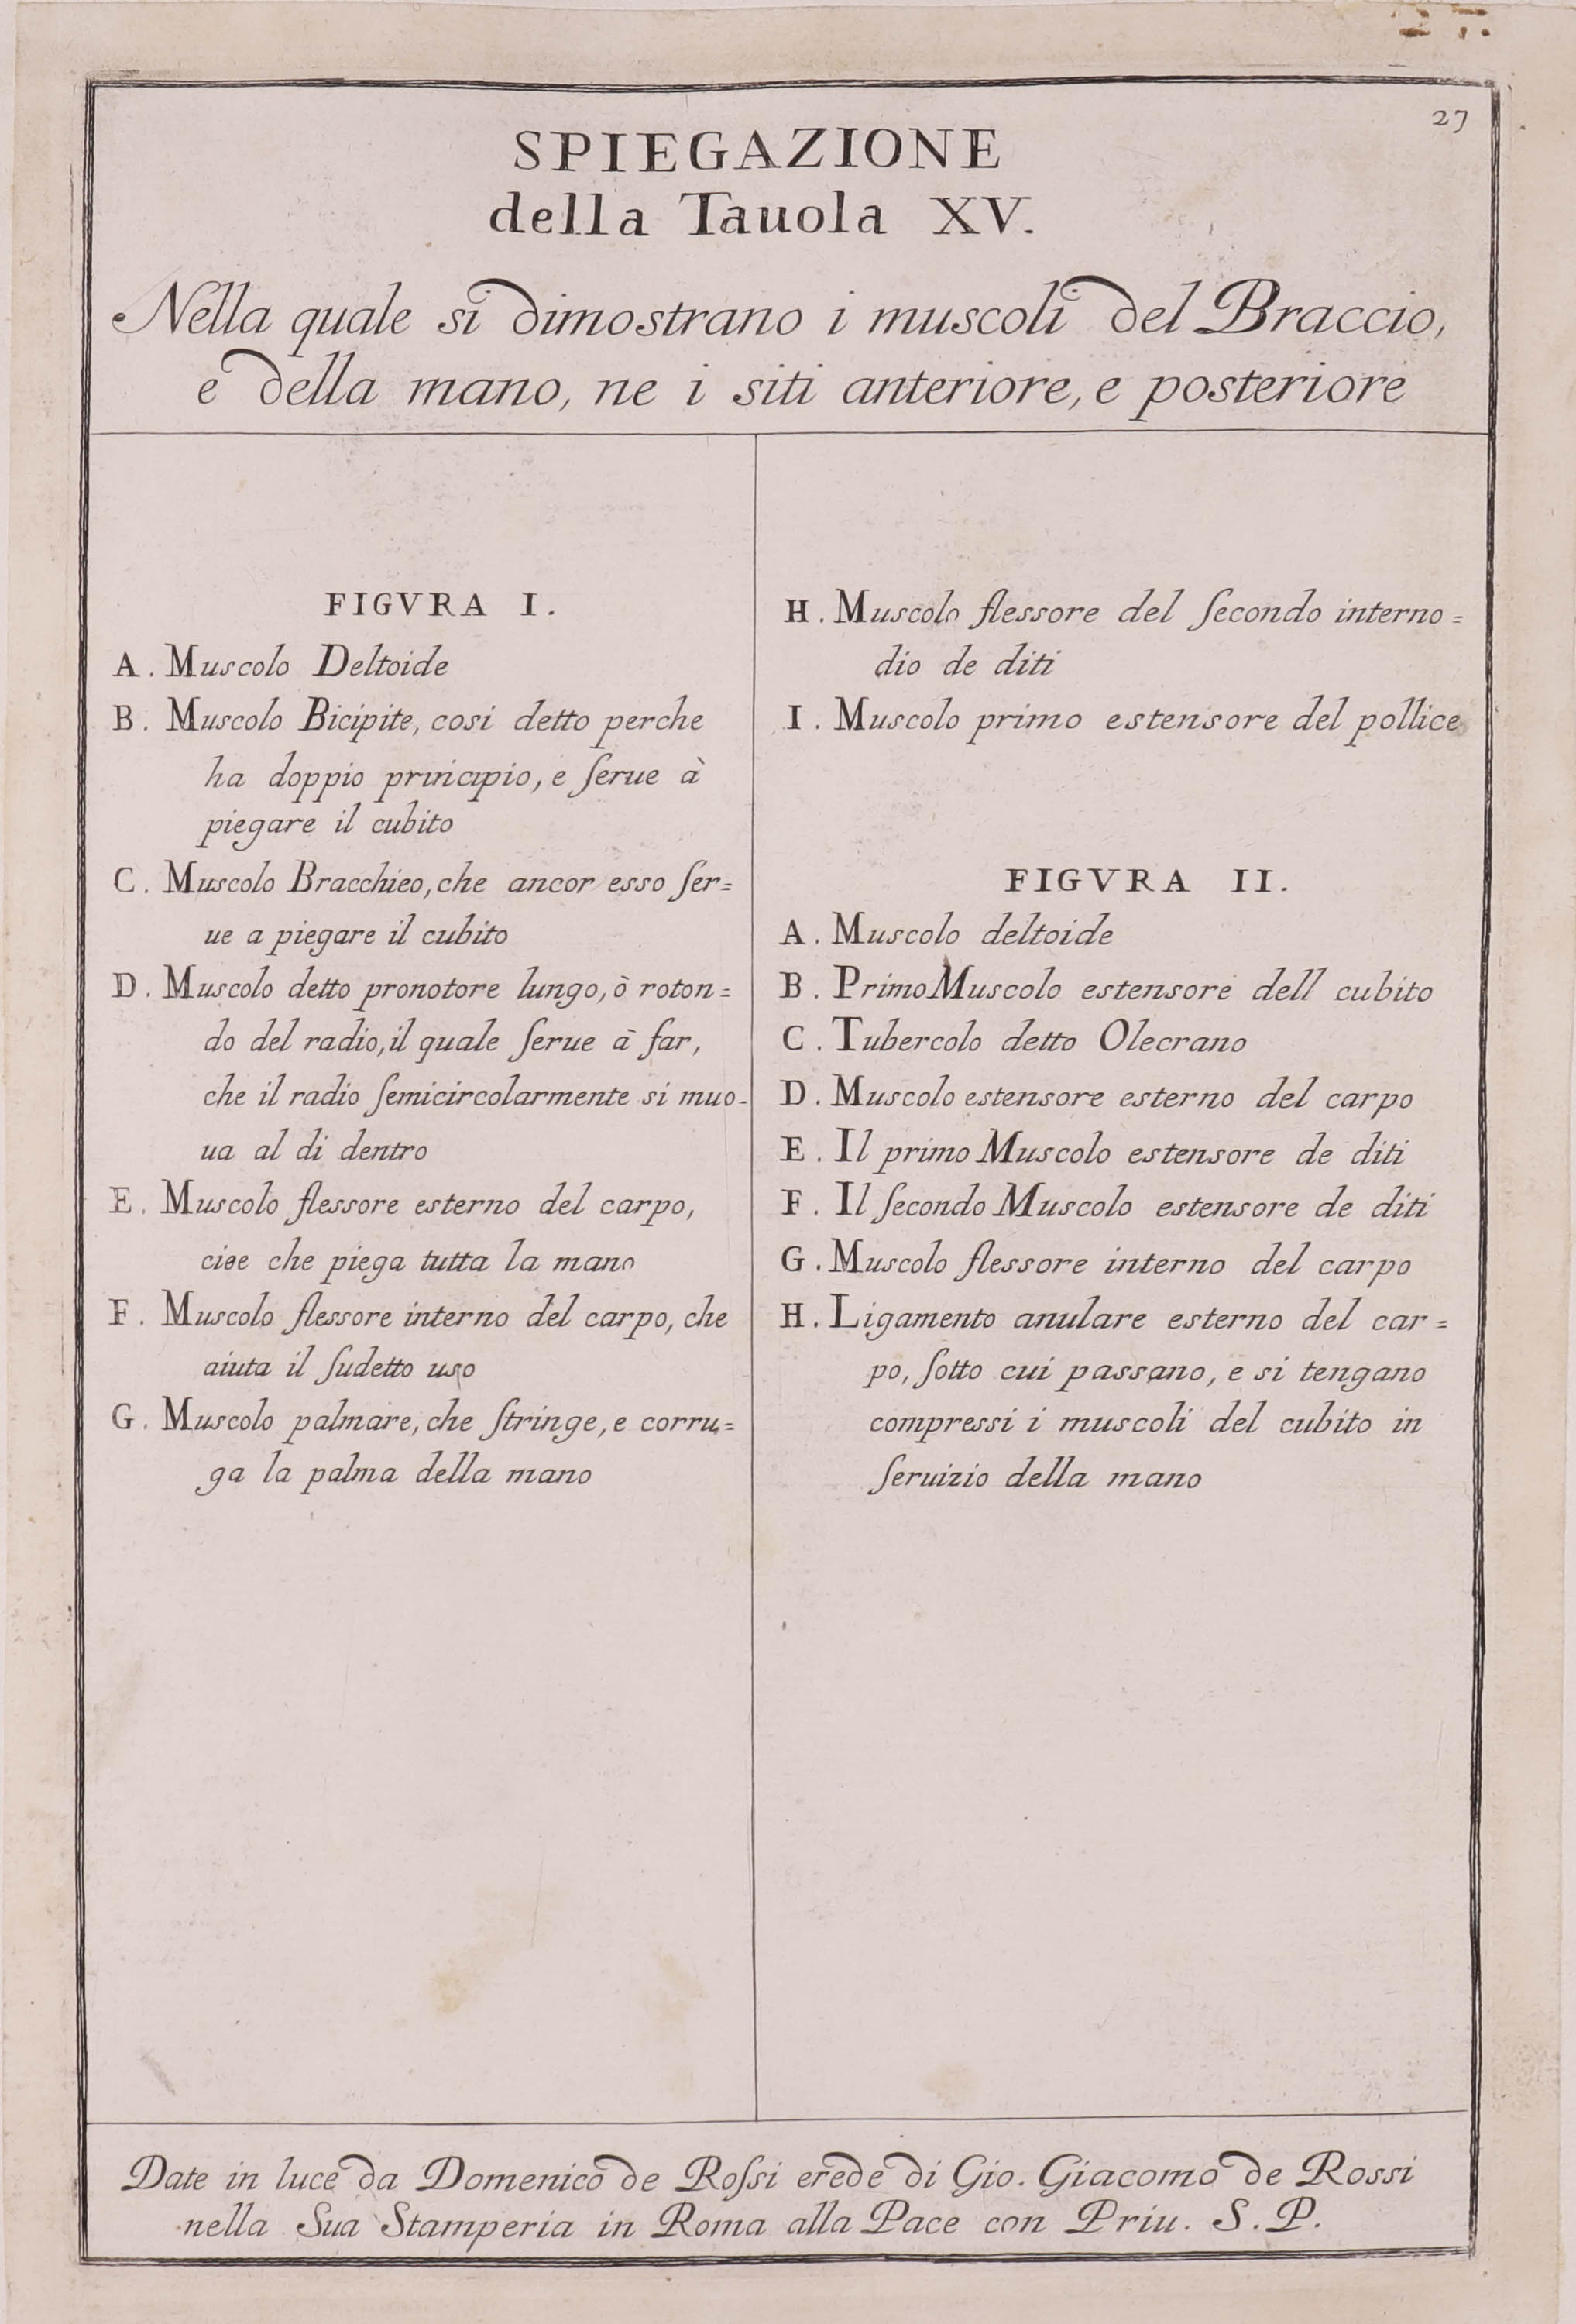 27
SPIEGAZIONE
della Tauola XV.
Nella quale si dimostrano i muscoli del Braccio,
e della mano, ne i siti anteriore, e posteriore
FIGVRA I.
A. Muscolo Deltoide
B. Muscolo Bicipite, cosi detto perche
ha doppio principio, e ſerue à
piegare il cubito
C. Muscolo Bracchieo, che ancor esso ſer=
ue a piegare il cubito
D. Muscolo detto pronotore lungo, ò roton=
do del radio, il quale ſerue à far,
che il radio ſemicircolarmente si muo-
ua al di dentro
E. Muscolo flessore esterno del carpo,
cioe che piega tutta la mano
F. Muscolo flessore interno del carpo, che
aiuta il ſudetto uso
G. Muscolo palmare, che ſtringe, e corru=
ga la palma della mano
H. Muscolo flessore del ſecondo interno=
dio de diti
I. Muscolo primo estensore del pollice
FIGVRA II.
A. Muscolo deltoide
B. Primo Muscolo estensore dell cubito
C. Tubercolo detto Olecrano
D. Muscolo estensore esterno del carpo
E. Il primo Muscolo estensore de diti
F. Il ſecondo Muscolo estensore de diti
G. Muscolo flessore interno del carpo
H. Ligamento anulare esterno del car=
po, ſotto cui passano, e si tengano
compressi i muscoli del cubito in
ſeruizio della mano
Date in luce da Domenico de Roſsi erede di Gio. Giacomo de Rossi
nella Sua Stamperia in Roma alla Pace con Priu. S. P.